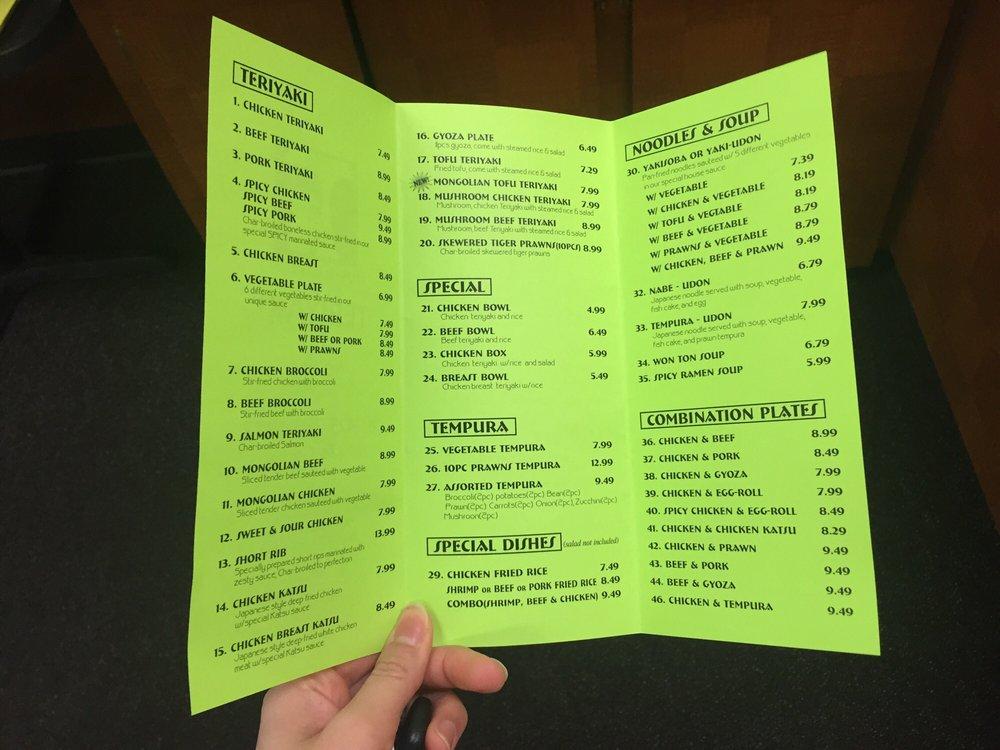 TERIYAKI
1. CHICKEN TERIYAKI 7.49
2. BEEF TERIYAKI 8.99
3. PORK TERIYAKI 8.49
4. SPICY CHICKEN 7.99
SPICY BEEF 9.49
SPICY PORK 8.99
Char-broiled boneless chicken stir-fried in our
special SPICY marinated sauce
5. CHICKEN BREAST 8.49
6. VEGETABLE PLATE 6.99
6 different vegetables stir-fried in our
unique sauce
W/ CHICKEN 7.49
W/ TOFU 7.99
W/ BEEF OR PORK 8.49
W/ PRAWNS 8.49
7. CHICKEN BROCCOLI 7.99
Stir-fried chicken with broccoli
8. BEEF BROCCOLI 8.99
Stir-fried beef with broccoli
9. SALMON TERIYAKI 9.49
Char-broiled Salmon
10. MONGOLIAN BEEF 8.99
Sliced tender beef sauteed with vegetable
11. MONGOLIAN CHICKEN 7.99
Sliced tender chicken sauteed with vegetable
12. SWEET & SOUR CHICKEN 7.99
13. SHORT RIB 13.99
Specially prepared short rips marinated with
zesty sauce, Char-broiled to perfection
14. CHICKEN KATSU 7.99
Japanese style deep fried chicken
w/special Katsu sauce
15. CHICKEN BREAST KATSU 8.49
Japanese style deep-fried white chicken
meat w/special Katsu sauce
16. GYOZA PLATE 6.49
11pcs gyoza, come with steamed rice & salad
17. TOFU TERIYAKI 7.29
Fried tofu, come with steamed rice & salad
NEW! MONGOLIAN TOFU TERIYAKI 7.99
18. MUSHROOM CHICKEN TERIYAKI 7.99
Mushroom, chicken Teriyaki with steamed rice & salad
19. MUSHROOM BEEF TERIYAKI 8.99
Mushroom, beef Teriyaki with steamed rice & salad
20. SKEWERED TIGER PRAWNS(10PCS) 8.99
Char-broiled skewered tiger prawns
SPECIAL
21. CHICKEN BOWL 4.99
Chicken teriyaki and rice
22. BEEF BOWL 6.49
Beef teriyaki and rice
23. CHICKEN BOX 5.99
Chicken teriyaki w/rice and salad
24. BREAST BOWL 5.49
Chicken breast teriyaki w/rice
TEMPURA
25. VEGETABLE TEMPURA 7.99
26. 10PC PRAWNS TEMPURA 12.99
27. ASSORTED TEMPURA 9.49
Broccoli(2pc) potatoes(2pc) Bean(2pc)
Prawn(2pc) Carrots(2pc) Onion(2pc), Zucchini(2pc)
Mushroom(2pc)
SPECIAL DISHES (salad not included)
29. CHICKEN FRIED RICE 7.49
SHRIMP OR BEEF OR PORK FRIED RICE 8.49
COMBO(SHRIMP, BEEF & CHICKEN) 9.49
NOODLES & SOUP
30. YAKISOBA OR YAKI-UDON
Pan fried noodles sauteed w/ 5 different vegetables
in our special house sauce
W/ VEGETABLE 7.39
W/ CHICKEN & VEGETABLE 8.19
W/ TOFU & VEGTABLE 8.19
W/ BEEF & VEGETABLE 8.79
W/ PRAWNS & VEGETABLE 8.79
W/ CHICKEN, BEEF & PRAWN 9.49
32. NABE - UDON 6.79
Japanese noodle served with soup, vegetable,
fish cake, and egg
33. TEMPURA - UDON 7.99
Japanese noodle served with soup, vegetable,
fish cake, and prawn tempura
34. WON TON SOUP 6.79
35. SPICY RAMEN SOUP 5.99
COMBINATION PLATES
36. CHICKEN & BEEF 8.99
37. CHICKEN & PORK 8.49
38. CHICKEN & GYOZA 7.99
39. CHICKEN & EGG-ROLL 7.99
40. SPICY CHICKEN & EGG-ROLL 8.49
41. CHICKEN & CHICKEN KATSU 8.29
42. CHICKEN & PRAWN 9.49
43. BEEF & PORK 9.49
44. BEEF & GYOZA 9.49
46. CHICKEN & TEMPURA 9.49